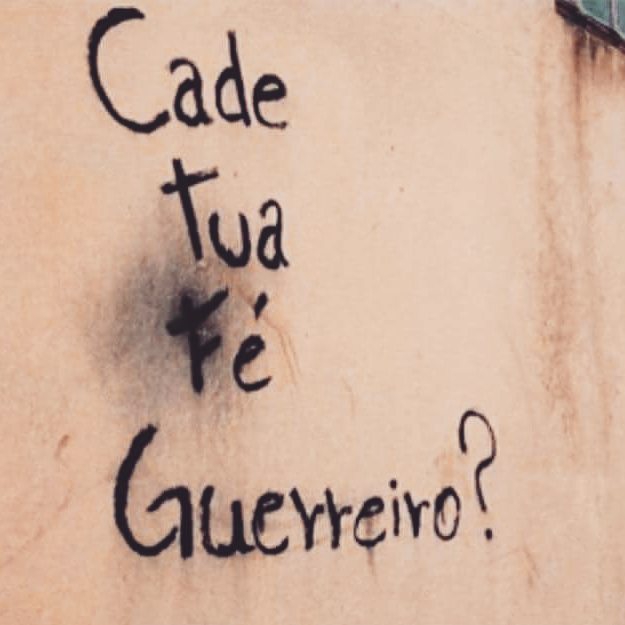 Cade
tua
Fé
Guerreiro?